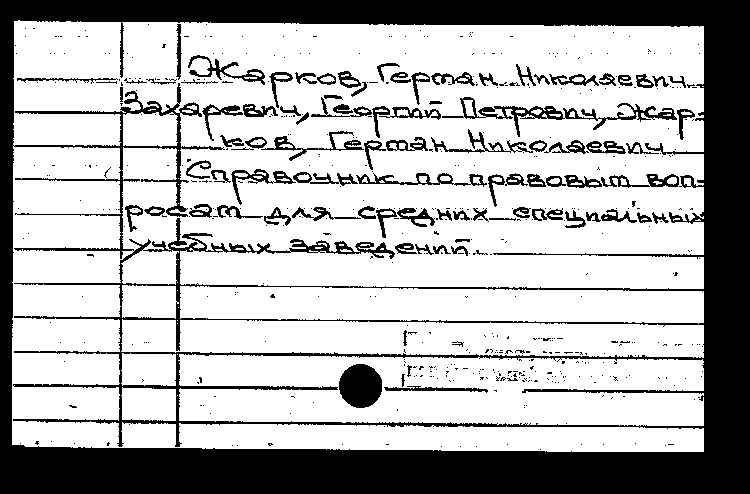 Жарков, Герман Николаевич
Захаревич, Георгий Петрович, Жар-
ков, Герман Николаевич
Справочник по правовым воп-
росам для средних специальных
учебных заведений.